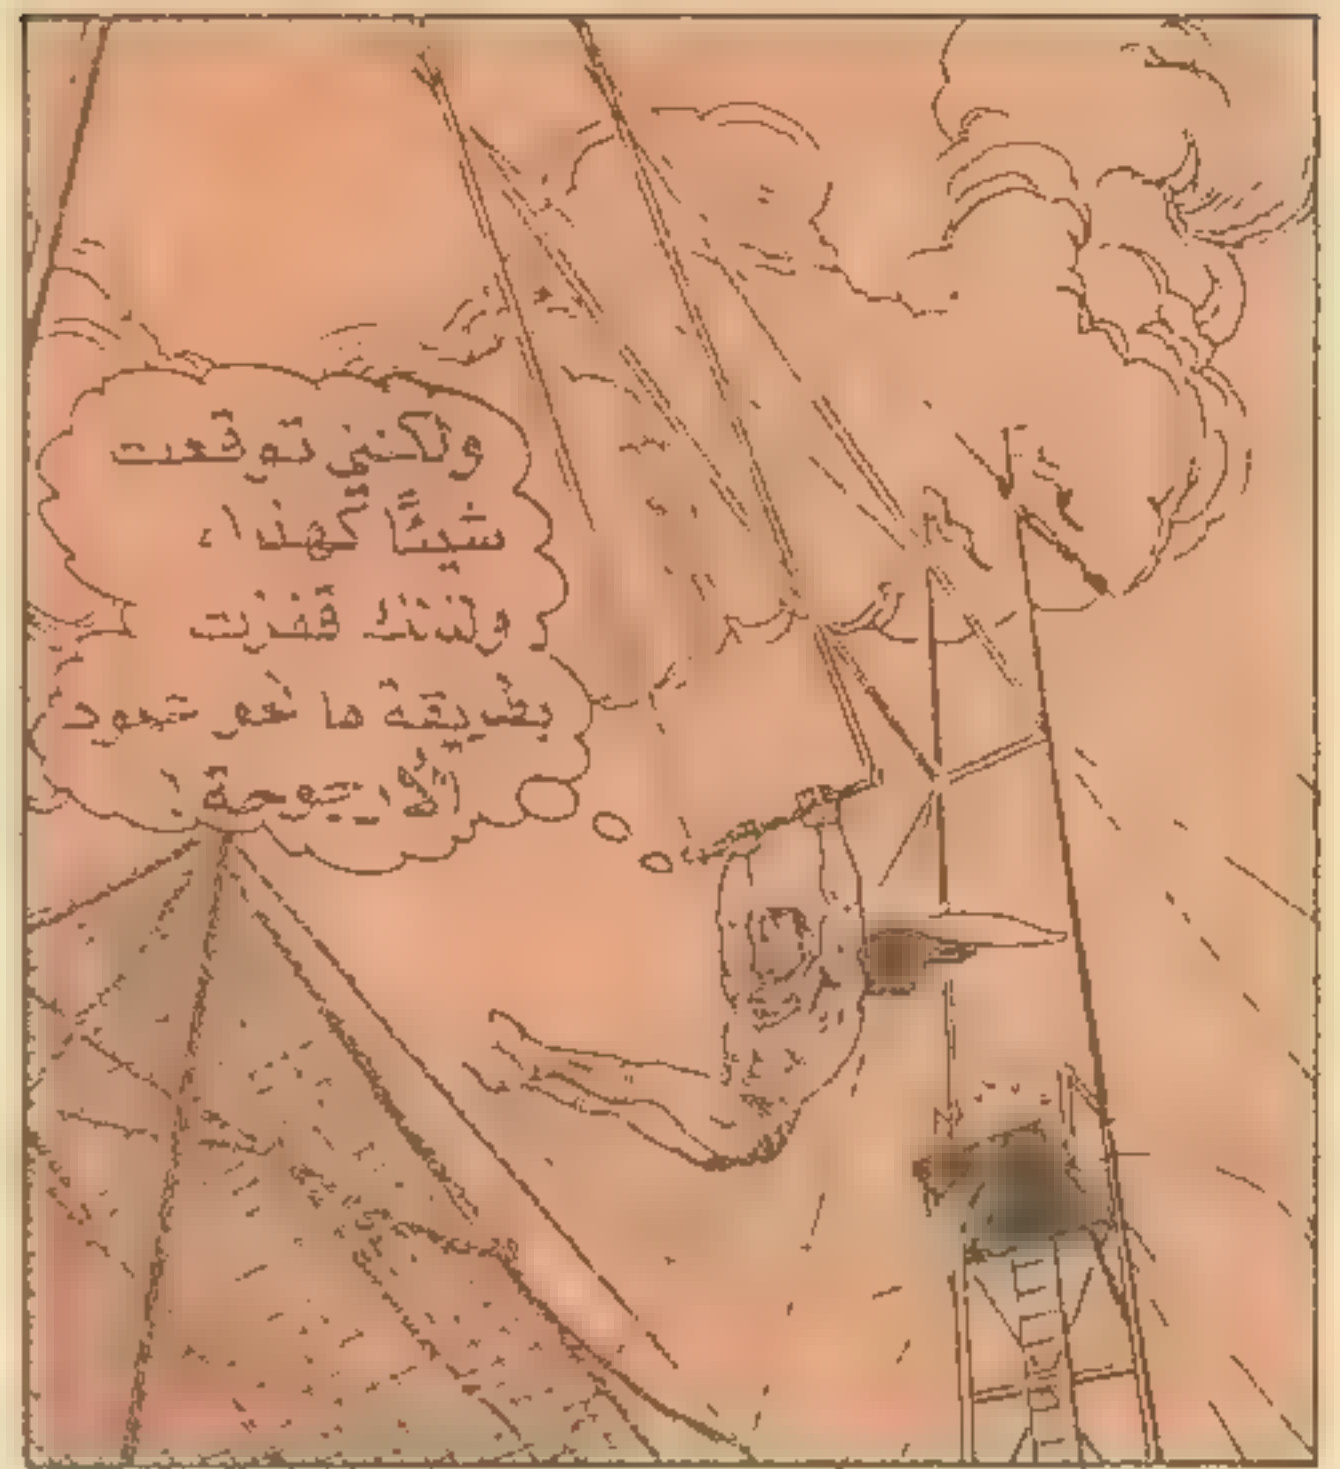 ولكني توقعت
شيئًا كهذا،
ولذلك قفزت
بطريقة ما نحو تعود
الأرجوحة